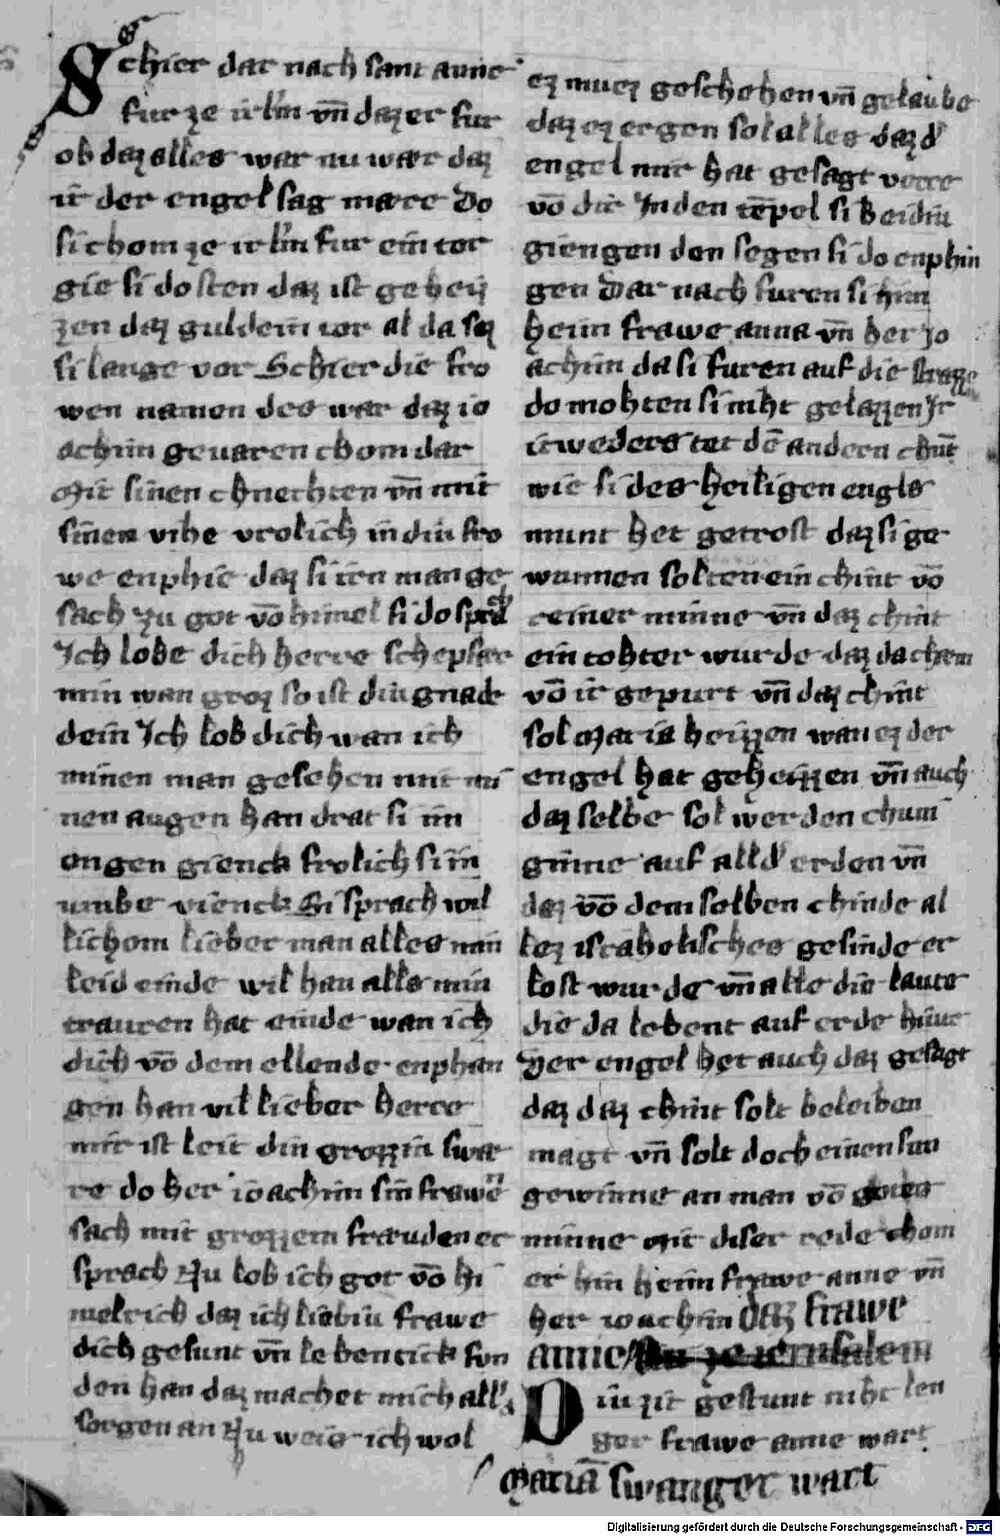 Schier dar nach sant anne
fur ze irlm vñ daz er fur
ob daz alles war nu wær daz
ir der engel sag mære Do
si chom ze irlm fur ein tor
gie si do sten daz ist geheiz
zen daz guldein tor al da saz
si lange vor Schier die fro
wen namen des war daz io
achim geuaren chom dar
Mit sinen chnechten vñ mit
sinen vihe vrolich in diu fro
we enphie daz si iren man ge
sach Zu got võ himel si do sprach
Ich lobe dich herre schepfær
min wan groz so ist diu gnade
dein Ich lob dich wan ich
minen man gesehen mit mi
nen augen han drat si im
engen gienck frolich si in
umbe vienck Si sprach wil
lichom lieber man alles min
leid einde wil han alls min
trauren hat einde wan ich
dich võ dem ellende enphan
gen han vil lieber herre
mir ist leit din grozziu swæ
re do her ioachim sin frawen
sach mit grozzem fræuden er
sprach Nu lob ich got võ hi
melrich daz ich liebiu frawe
dich gesunt vñ lebentick fun
den han daz machet mich all'
sorgen an Nu weis ich wol
ez muez geschehen vñ gelaube
daz ez ergen sol alles daz d'
engel mir hat gesagt verre
võ dir In den tẽpel si beidiu
giengen den segen si do enphin
gen Dar nach furen si hin
heim frawe anna vñ her Jo
achim da si furen auf die strazze
do mohten si niht gelazzen Ir
itweders tet dẽ andern chũt
wie si des heiligen engls
munt het getrost daz si ge
wunnen solten ein chint võ
reiner minne vñ daz chint
ein tohter wurde daz da chæm
võ ir gepurt vñ daz chint
sol Maria heizzen wan ez der
engel hat geheizzen vñ auch
daz selbe sol werden chuni
ginne auf all d' erden vñ
daz võ dem selben chinde al
lez israhelisches gesinde er
lost wurde vñ alle die laute
die da lebent auf erde hiute
Der engel het auch daz gesagt
daz daz chint solt beleiben
magt vñ solt doch einen sun
gewinne an man võ gotes
minne Mit diser rede chom
er hin heim frawe anne vñ
her ioachim Daz frawe
anne ze ierusalem
Diu zit gestunt niht len
ger frawe anne wart
Mariã swanger wart
Digitalisierung gefördert durch die Deutsche Forschungsgemeinschaft - DFG